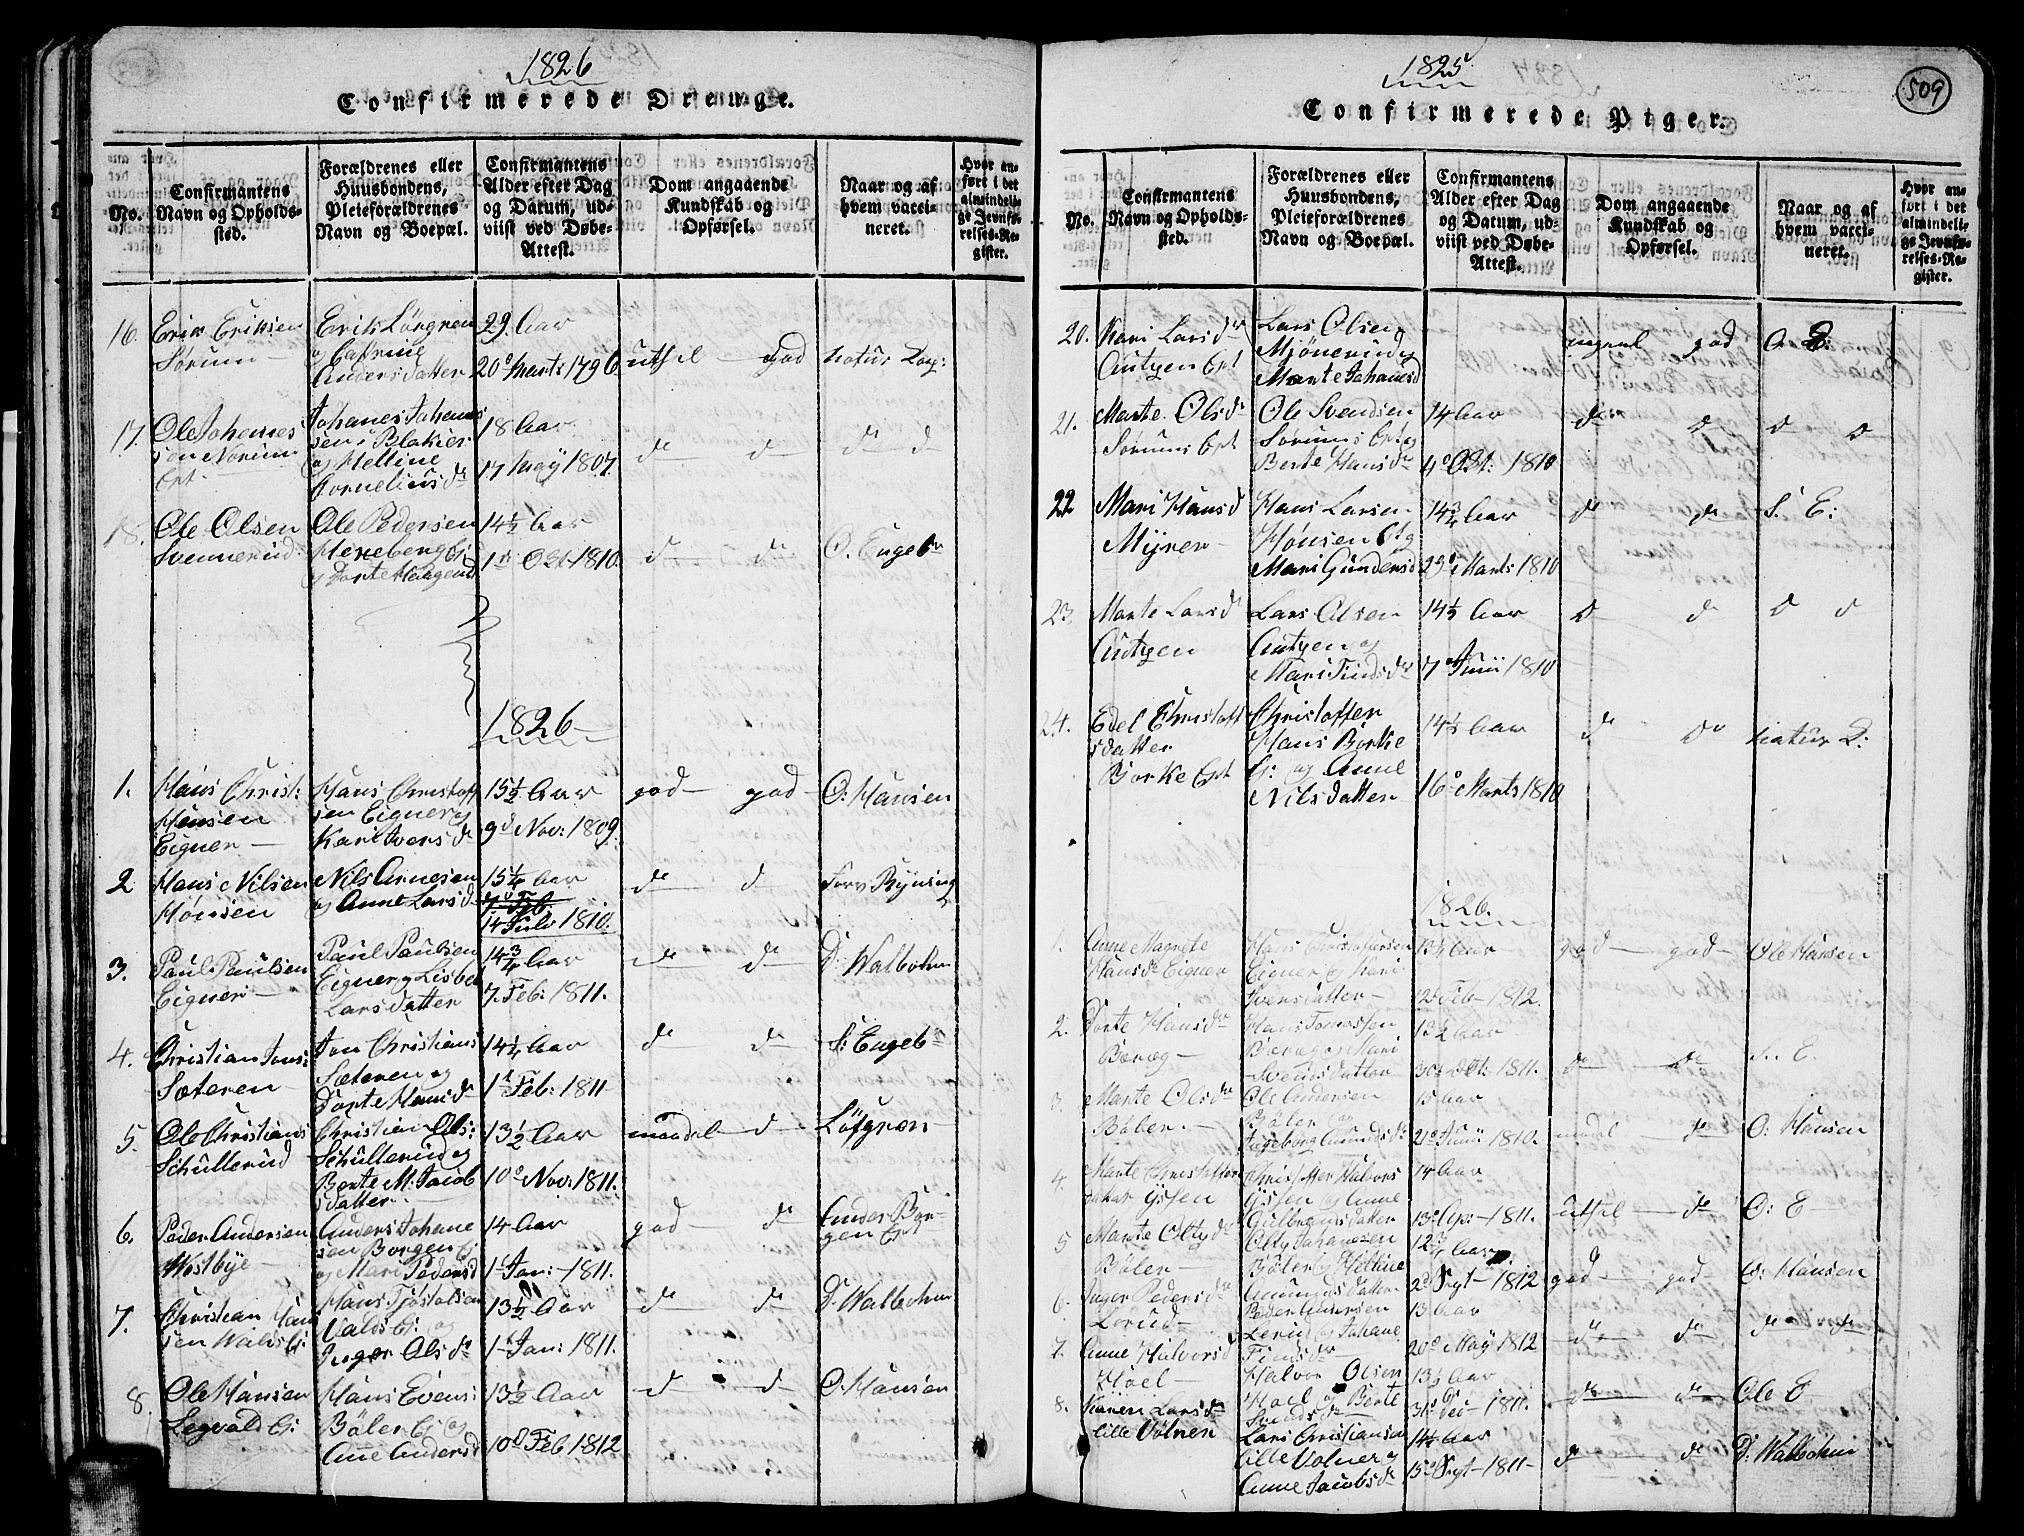 1826
Confirmerede Drenge.
No.
Confirmantens
Navn og Opholds-
sted.
Forældrenes eller
Huusbondens,
Pleieforældrenes
Navn og Boepæl.
Confirmantens
Alder efter Dag
og Datum, ud-
viist ved Døbe-
Attest.
Dom angaaende
Kundskab og
Opførsel.
Naar og af
hvem vacci-
neret.
Hvor an-
ført i det
almindeli-
ge Jevnfø-
relses-Re-
gister.
16. Erik Eriksen
Sørum
Erik Löfgren
og Catrine
Anders datter
29 Aar
20 Marts 1796
utsil god natur Kop:
17. Ole Johannes
sen Sørum
Ept.
Johanes Johanes
sen i Blakier
og Helline
Cornelius dr
18 Aar
17 Maÿ 1807.
do do do do
18. Ole Olsen
Svennerud
Ole Pedersen
og Dorte Haagend
14 1/2 Aar
1 Oct 1810.
do do O. Engebr
1826
1. Hans Christ:
Hansen
Eigner
Hans Christoff
sen Eigner og
Kari Ivers dr
15 1/2 Aar
9d Nov: 1809.
god god O: Hansen
2 Hans Nilsen
Hønsen
Nils Arnesen
og Anne Lars d
15 1/4 Aar
7 Feb:
14 Juli 1810.
do do Forv Rynning
3. Paul Paulsen
Eigner
Paul Paulsen
Eigner og Lisbet
Lars datter
14 3/4 Aar
7. Feb: 1811.
do do D: Walbohm
4. Christian Jons:
Sæteren
Jon Christians
Sæteren og
Dorte Hans dr
14 1/4 Aar
1 Feb: 1811
do do S: Engebr
5. Ole Christians
Schullerud
Christian Ols:
Schullerud og
Berte M. Jacob
sdatter
13 1/2 Aar
10 Nov: 1811.
maadel do Löfgren
6. Peder Andersen
Westbye
Anders Johane
sen Borgen Ej
og Mari Pedersd
14 Aar
1 Jan: 1811.
god do Anders Bor-
gen Ept
7. Christian Han
sen Walds Ej:
Hans Tjostolsen
Valds Ej: og
Inger Ols dr
13 1/2 Aar
1 Jan: 1811.
do do D: Walbohm
8. Ole Hansen
Legvald Ej:
Hans Evens:
Böler Ej og
Ane Andersd
13 1/2 Aar
10 Feb 1812
do do O: Hansen
1825
509
Confirmerede Piger.
No.
Confirmantens
Navn og Opholds-
sted.
Forældrenes eller
Huusbondens,
Pleieforældrenes
Navn og Boepæl.
Confirmantens
Alder efter Dag
og Datum, ud-
viist ved Døbe-
Attest.
Dom angaaende
Kundskab og
Opførsel.
Naar og af
hvem vacci-
neret.
Hvor an-
ført i det
almindeli-
ge Jevnfø-
relses-Re-
gister.
20. Kari Lars dr
Autyen Ept
Lars Olsen
Mjönerud og
Marte Johanesd
god O E:
21. Marte Ols dr
Sørums Ept
Ole Svendsen
Sørums Ept og
Berte Hans dr
14 Aar
4 Oct: 1810
do do do do
22 Mari Hans d
Myrer
Hans Larsen
Hønsen Ept og
Mari Gundersd
14 3/4 Aar
29 Marts 1810
do do S. E:
23 Marte Lars dr
Autyen
Lars Olsen
Autyen og
Mari Finds dr
14 1/2 Aar
7 Junii 1810
do do do do
24. Edel Christoff
sdatter
Bjorke Ept
Christoffer
Hans Borke
Ej: og Anne
Nils datter
14 1/2 Aar
16 Marts 1810
do do natur K:
1826.
1. Anne Magrete
Hans dr Eigner
Hans Christoffersen
Eigner og Kari
Ivers datter
13 1/2 Aar
12 Feb 1812.
god god Ole Hansen
2. Dorte Hans dr
Bæreg
Hans Tomessen
Bæreg og Mari
Svends datter
13 1/2 Aar
30 Oct: 1811.
do do S. E.
3. Marte Ols dr
Böler
Ole Andersen
Böler og
Ingeborg Amunds dr
15 Aar
21 Junii 1810.
madel do O: Hansen
4 Marte Christoffer
datter Ijssen
Christoffer Halvors
Ijssen og Anne
Gulbrands datter
14 Aar
13 Apr: 1811.
utsil do O: E
5 Marte Olty dr
Böler
Olty Johanesen
Böler og Helline
Amunds datter
12 3/4 Aar
2 Sept 1812
god god O: Hansen
6. Inger Peders dr
Lerud
Peder Andersen
Lerud og Johane
Finds dr
13 Aar
20 May 1812
do do do do
7. Anne Halvorsd
Hoel
Halvor Olsen
Hoel og Berte
Svends dr
13 1/2 Aar
31 Dec 1811.
do do Ole E
8. Karen Lars dr
Lille Völner
Lars Christiansen
Lille Volner og
Anne Jacobs dr
14 1/2 Aar
15 Sept 1811
do do D: Walbohm